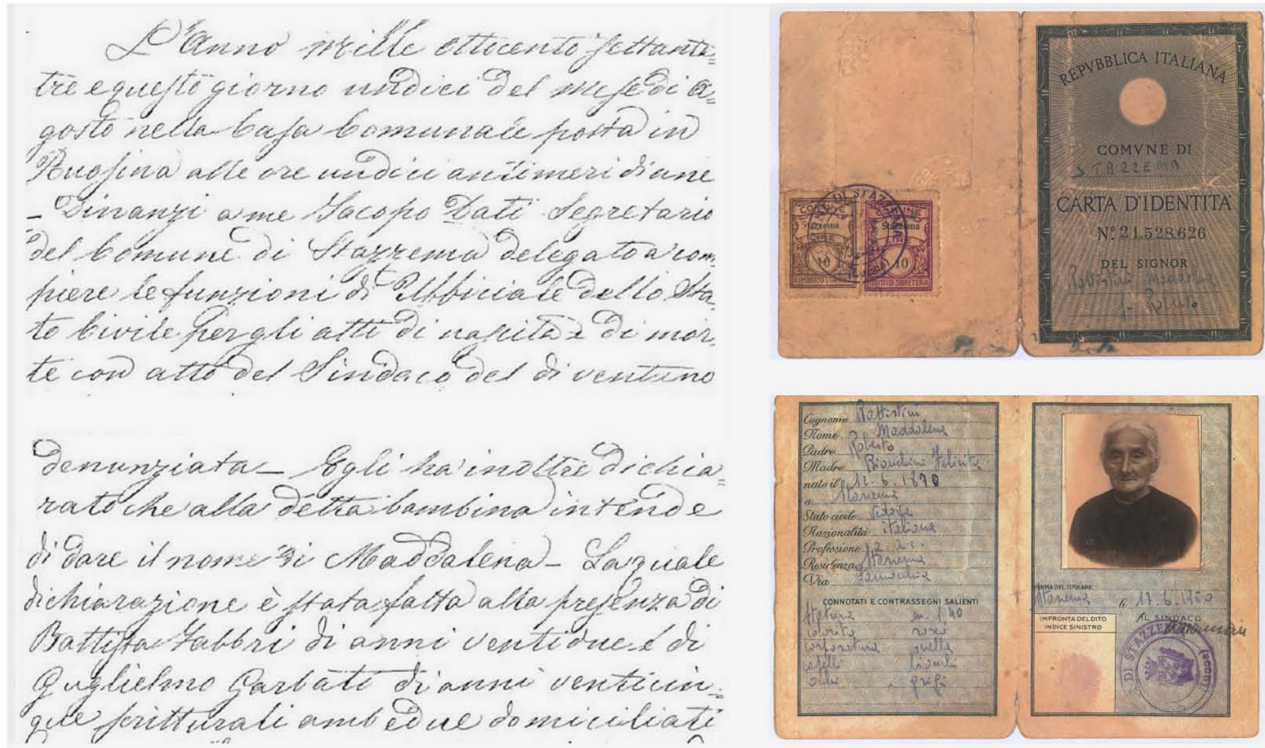 L'Anno mille ottocento settanta=
tre e questo giorno undici del mese di A=
gosto nella Casa Comunale posta in
Ruosina alle ore undici antimeridiane
– Dinanzi a me Jacopo Dati Segretario
del Comune di Stazzema delegato a com
piere le funzioni di Ufficiale dello Sta
to Civile per gli atti di nascita e di mor
te con atto del Sindaco del di ventuno
denunziata – Egli ha inoltre dichia=
rato che alla detta bambina intende
di dare il nome di Maddalena – La quale
dichiarazione è stata fatta alla presenza di
Battista Fabbri di anni ventidue e di
Guglielmo Garbati di anni venticin=
que scritturali ambedue domiciliati
REPVBBLICA ITALIANA
COMVNE DI
STAZZEMA
CARTA D'IDENTITÀ
Nº 21.528.626
DEL SIGNOR
Battistini
di Roberto
DI STAZZEMA
COMUNE
Stazzema
LIRE
10
COMUNE
Stazzema
LIRE
10
Cognome Battistini
Nome Maddalena
Padre Roberto
Madre Bianchini Felicita
nato il 12.6.1870
a Stazzema
Stato civile vedova
Nazionalità italiana
Professione
Residenza Stazzema
Via
CONNOTATI E CONTRASSEGNI SALIENTI
Statura m. 1.40
colorito roseo
corporatura snella
capelli bianchi
occhi grigi
FIRMA DEL TITOLARE
Stazzema li 17.6.1950
IMPRONTA DEL DITO
INDICE SINISTRO
IL SINDACO
DI STAZZEMA